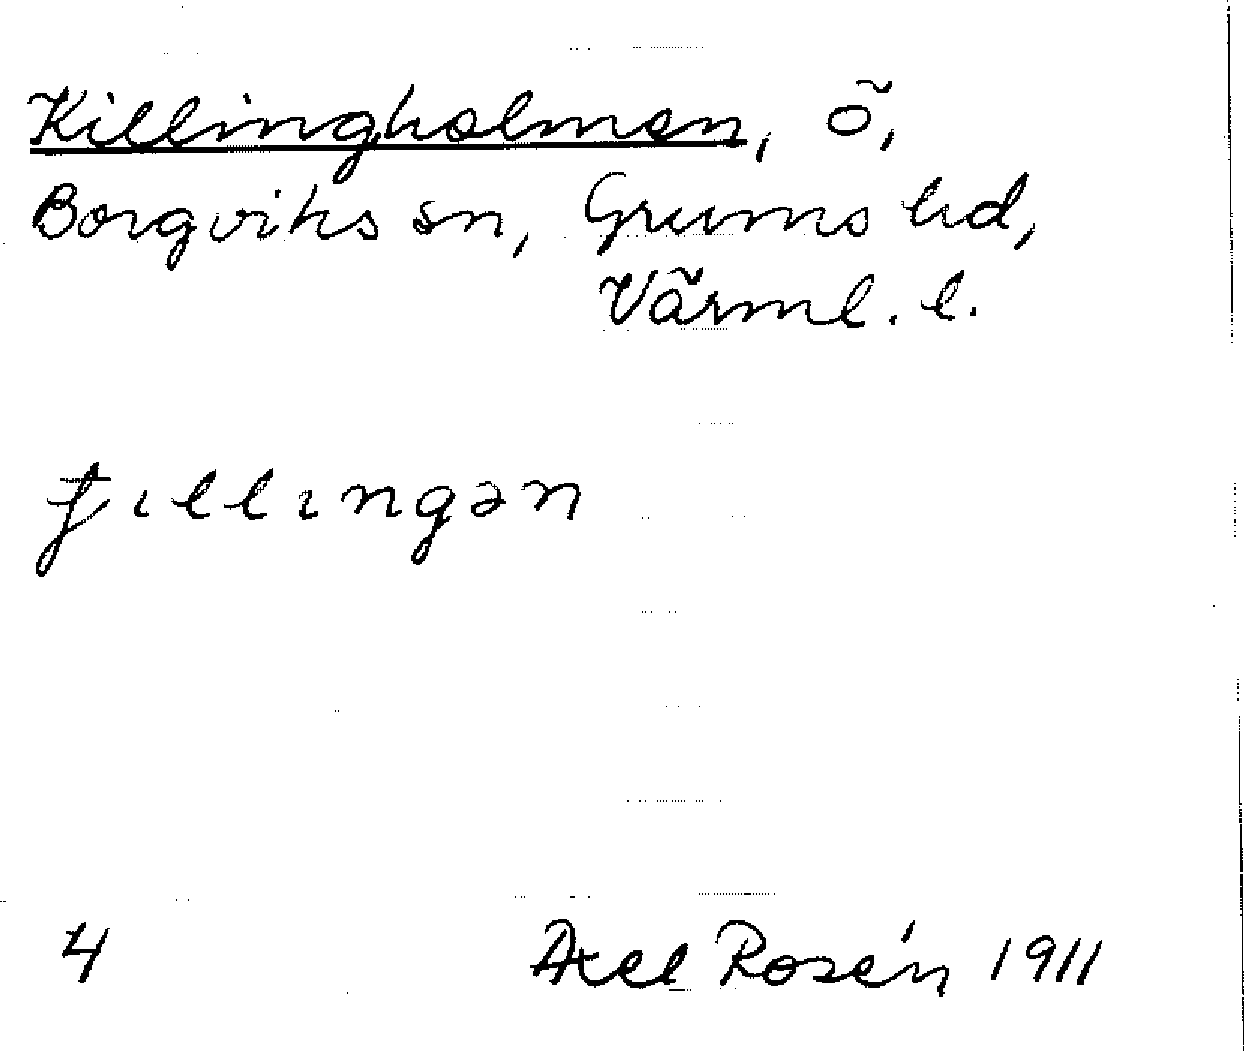 Killingholmen, ö,
Borgviks sn, Grums hd,
Värml. l.
ɟıllıngən
4 Axel Rosén 1911